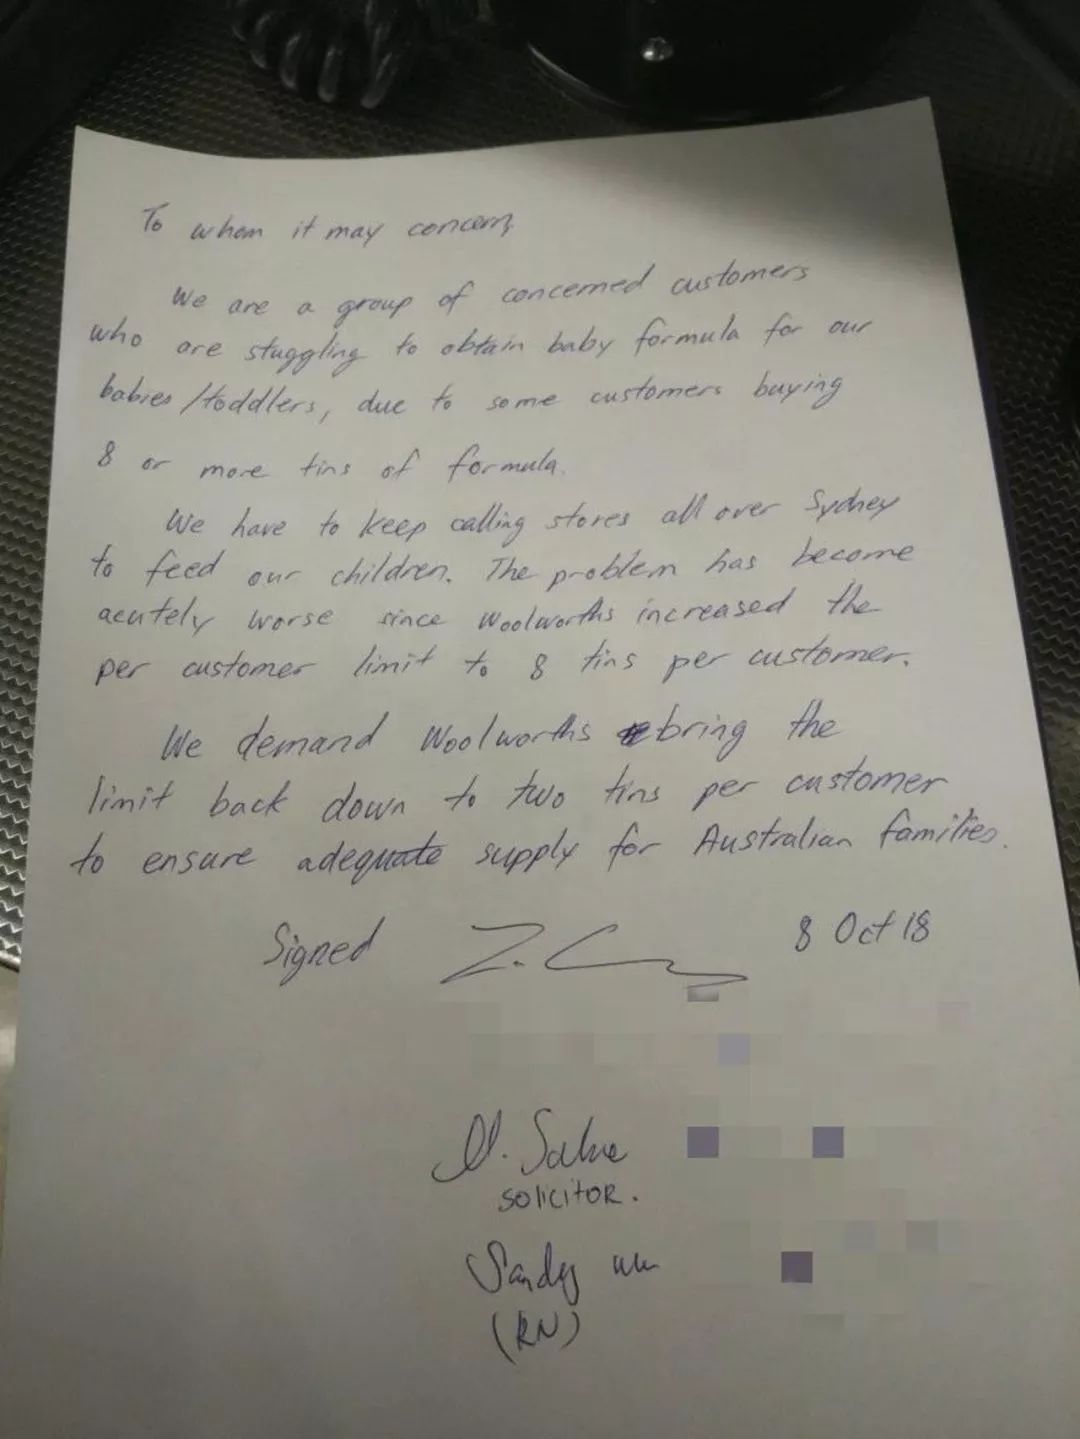 To whom it may concern,
We are a group of concerned customers
who are stuggling to obtain baby formula for our
babies/toddlers, due to some customers buying
8 or more tins of formula.
We have to keep calling stores all over Sydney
to feed our children. The problem has become
acutely worse since Woolworths increased the
per customer limit to 8 tins per customer.
We demand Woolworths bring the
limit back down to two tins per customer
to ensure adequate supply for Australian families.
Signed 8 Oct 18
SOLICITOR.
Sandy
(RN)